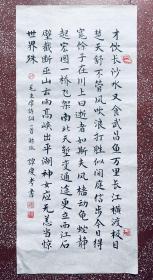 才饮长沙水又食武昌鱼万里长江横渡极目
楚天舒不管风吹浪打胜似闲庭信步今日得
宽馀子在川上曰逝者如斯夫风樯动龟蛇静
起宏图一桥飞架南北天堑变通途更立西江石
壁截断巫山云雨高峡出平湖神女应无恙当惊
世界殊